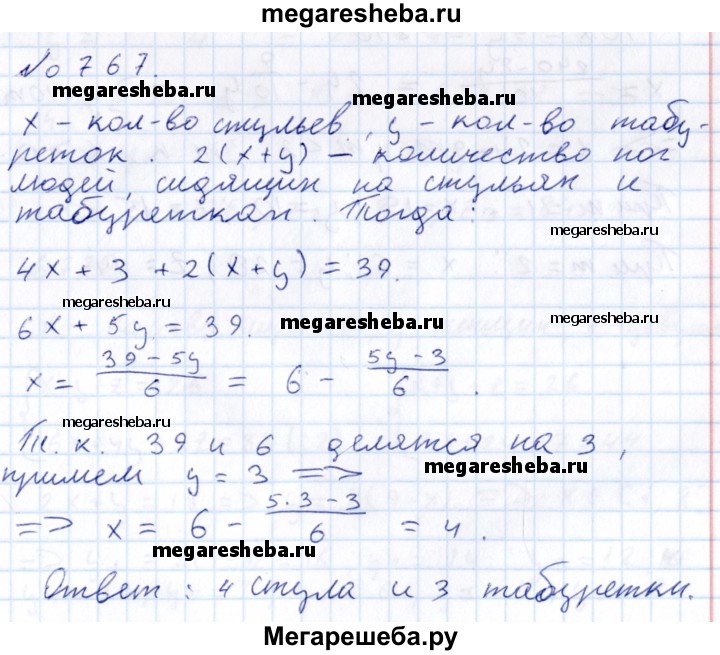 megaresheba.ru
№ 767.
megaresheba.ru megaresheba.ru
x – кол-во стульев, y – кол-во табу-
реток. 2(x+y) – количество ног
людей, сидящих на стульях и
табуретках. Тогда:
megaresheba.ru
4x + 3 + 2(x+y) = 39.
megaresheba.ru
6x + 5y = 39. megaresheba.ru
x = (39 – 5y)/6 = 6 – (5y – 3)/6.
megaresheba.ru
Т. к. 39 и 6 делятся на 3,
примем y = 3 => megaresheba.ru
=> x = 6 – (5·3 – 3)/6 = 4.
megaresheba.ru
Ответ: 4 стула и 3 табуретки.
Мегарешеба.ру